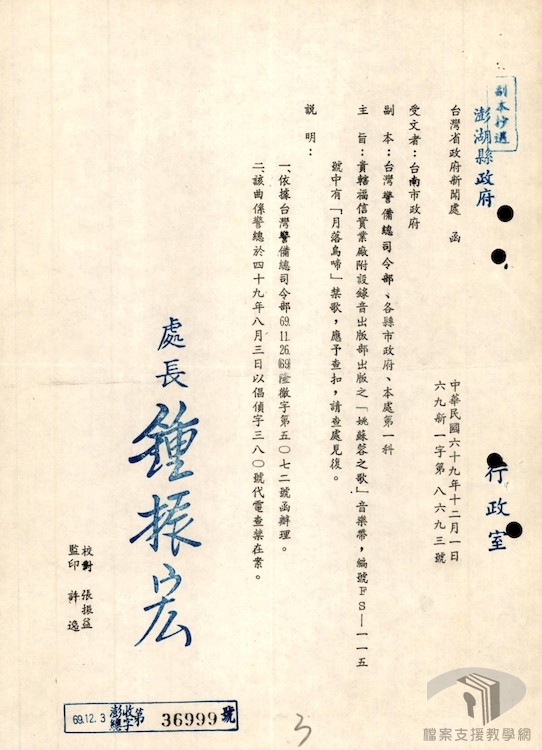 副本抄送
澎湖縣政府
台灣省政府新聞處　函
中華民國六十九年十二月一日
六九新一字第八六九三號
行政室
受文者：台南市政府
副　本：台灣警備總司令部、各縣市政府、本處第一科
主　旨：貴轄福信實業廠附設錄音出版部出版之「姚蘇蓉之歌」音樂帶，編號ＦＳ—一一五
號中有「月落烏啼」禁歌，應予查扣，請查處見復。
說　明：
一、依據台灣警備總司令部69.11.26.(69)隆徹字第五〇七二號函辦理。
二、該曲係警總於四十九年八月三日以倡偵字三八〇號代電查禁在案。
處長 鍾振宏
校對　張振益
監印　許　逸
69.12.3 澎收總字第 36999 號
3
檔案支援教學網